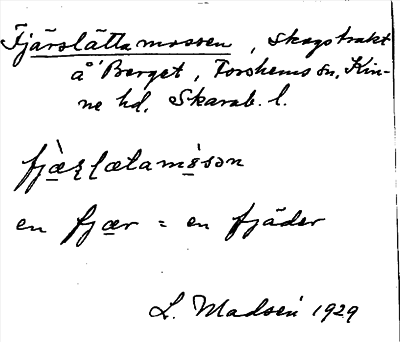 Fjärslättamossen, skogstrakt
å Berget, Forshems sn, Kin-
ne hd, Skarab. l.
fjæ̀ʂlætamɵsən
en fjær = en fjäder
L. Madsén 1929